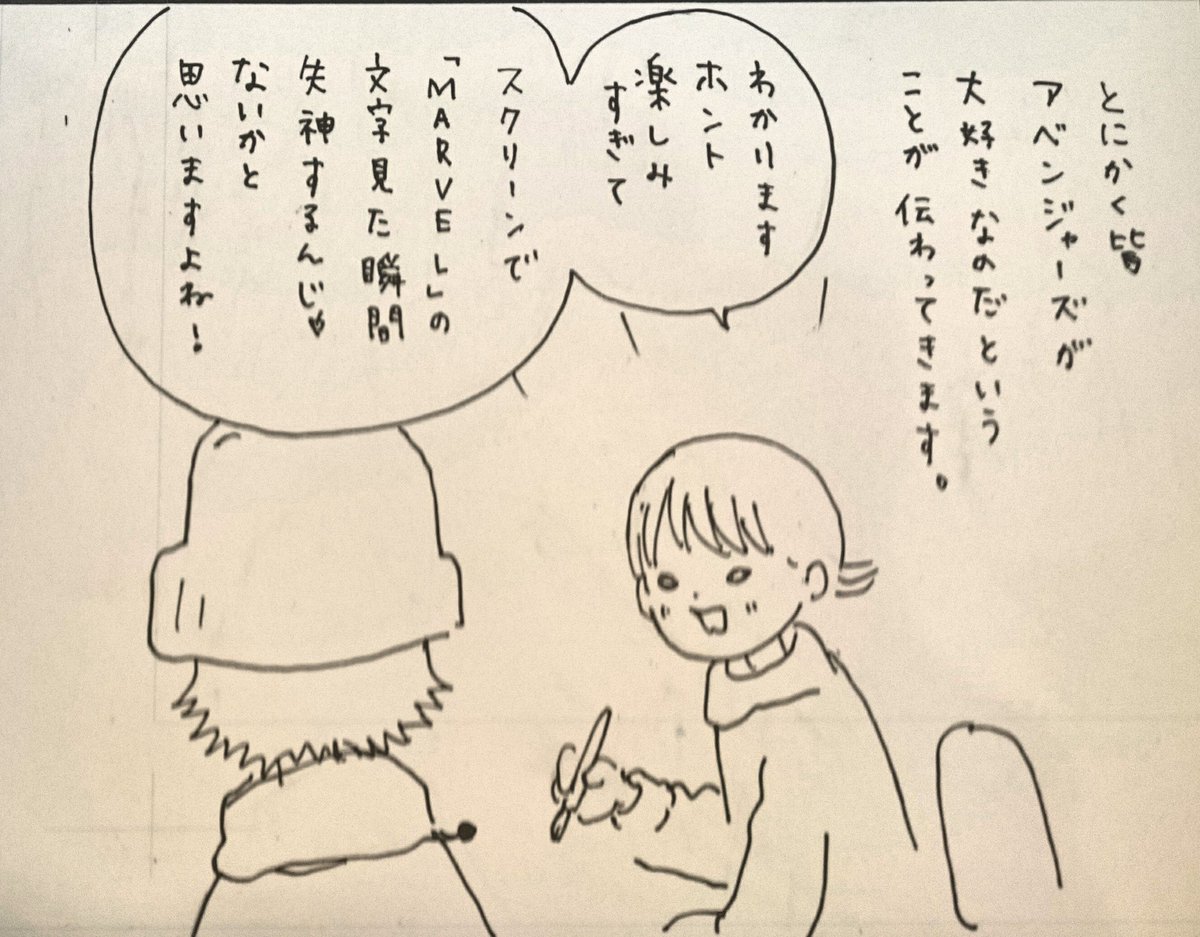 とにかく皆
アベンジャーズが
大好きなのだという
ことが伝わってきます。
わかります
ホント
楽しみ
すぎて
スクリーンで
「MARVEL」の
文字見た瞬間
失神するんじゃ
ないかと
思いますよね!